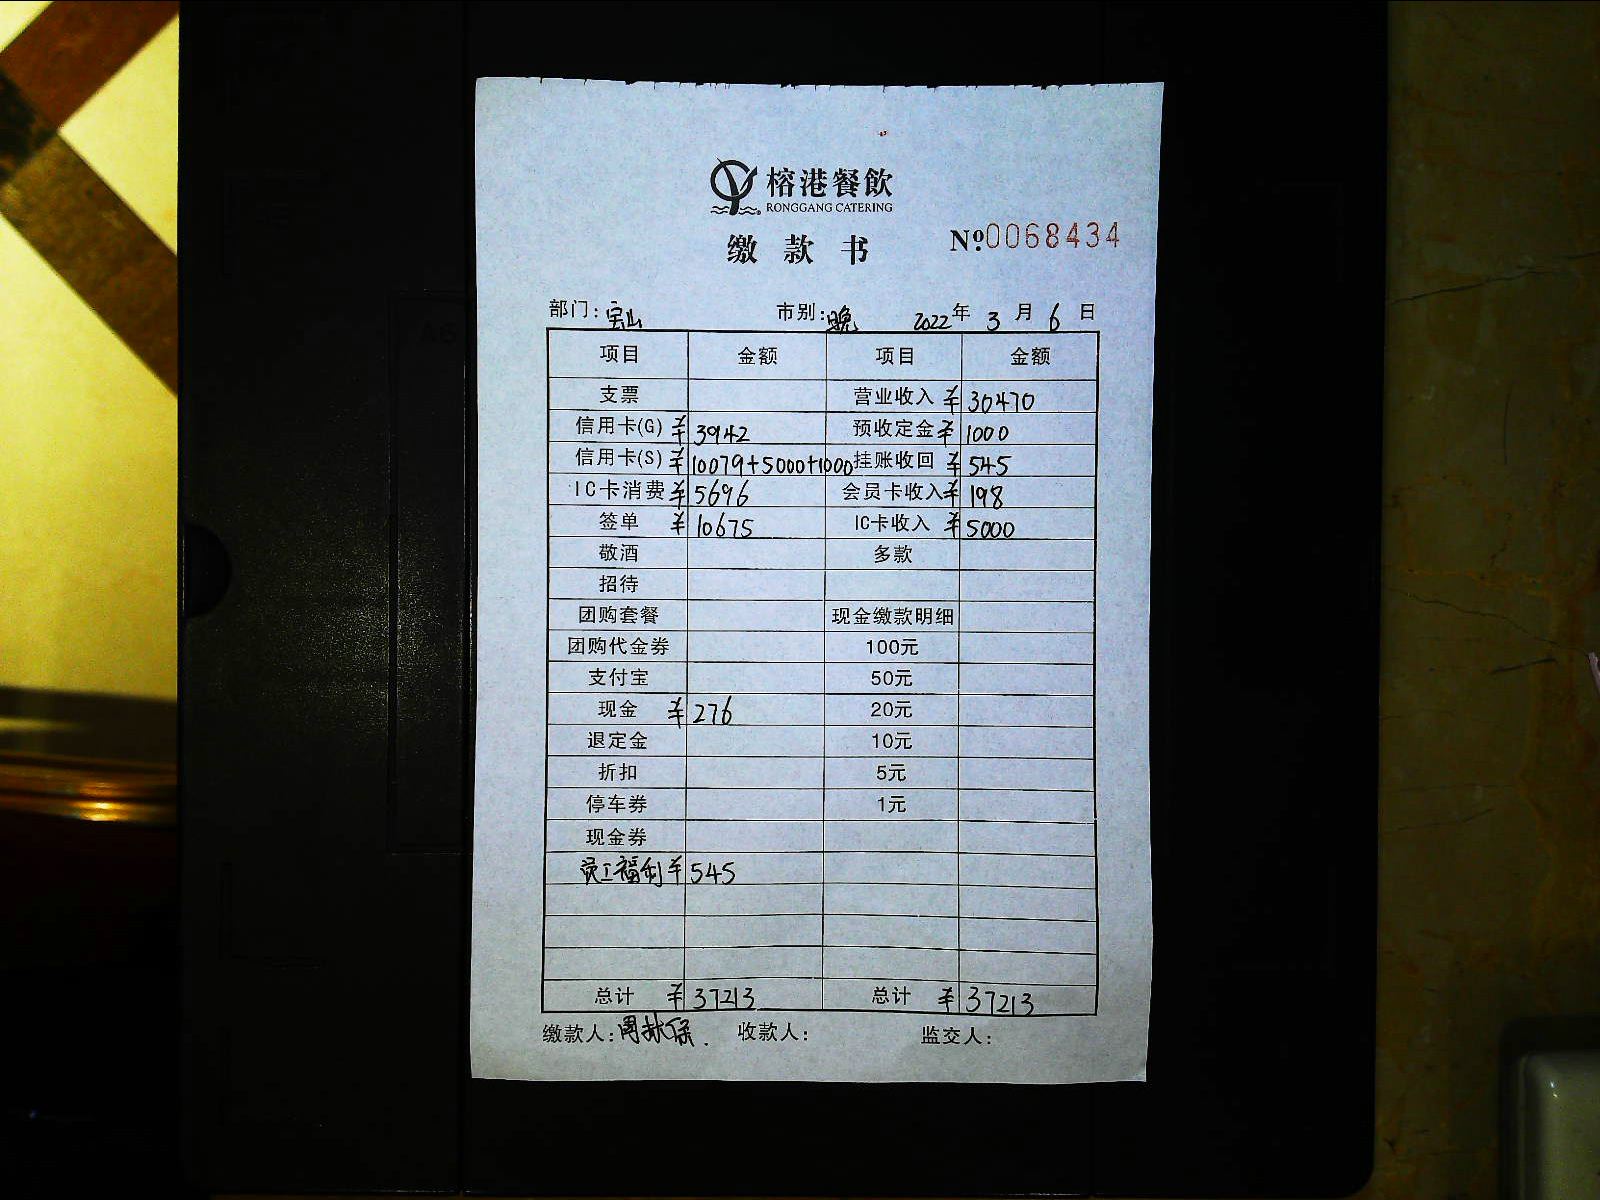 榕港餐飲
RONGGANG CATERING
缴款书 №0068434
部门：宝山 市别：晚 2022年3月6日
项目 金额 项目 金额
支票 营业收入 ¥30470
信用卡(G) ¥3942 预收定金 ¥1000
信用卡(S) ¥10079+5000+1000 挂账收回 ¥545
IC卡消费 ¥5696 会员卡收入 ¥198
签单 ¥10675 IC卡收入 ¥5000
敬酒 多款
招待
团购套餐 现金缴款明细
团购代金券 100元
支付宝 50元
现金 ¥276 20元
退定金 10元
折扣 5元
停车券 1元
现金券
员工福利 ¥545
总计 ¥37213 总计 ¥37213
缴款人：周秋保. 收款人： 监交人：